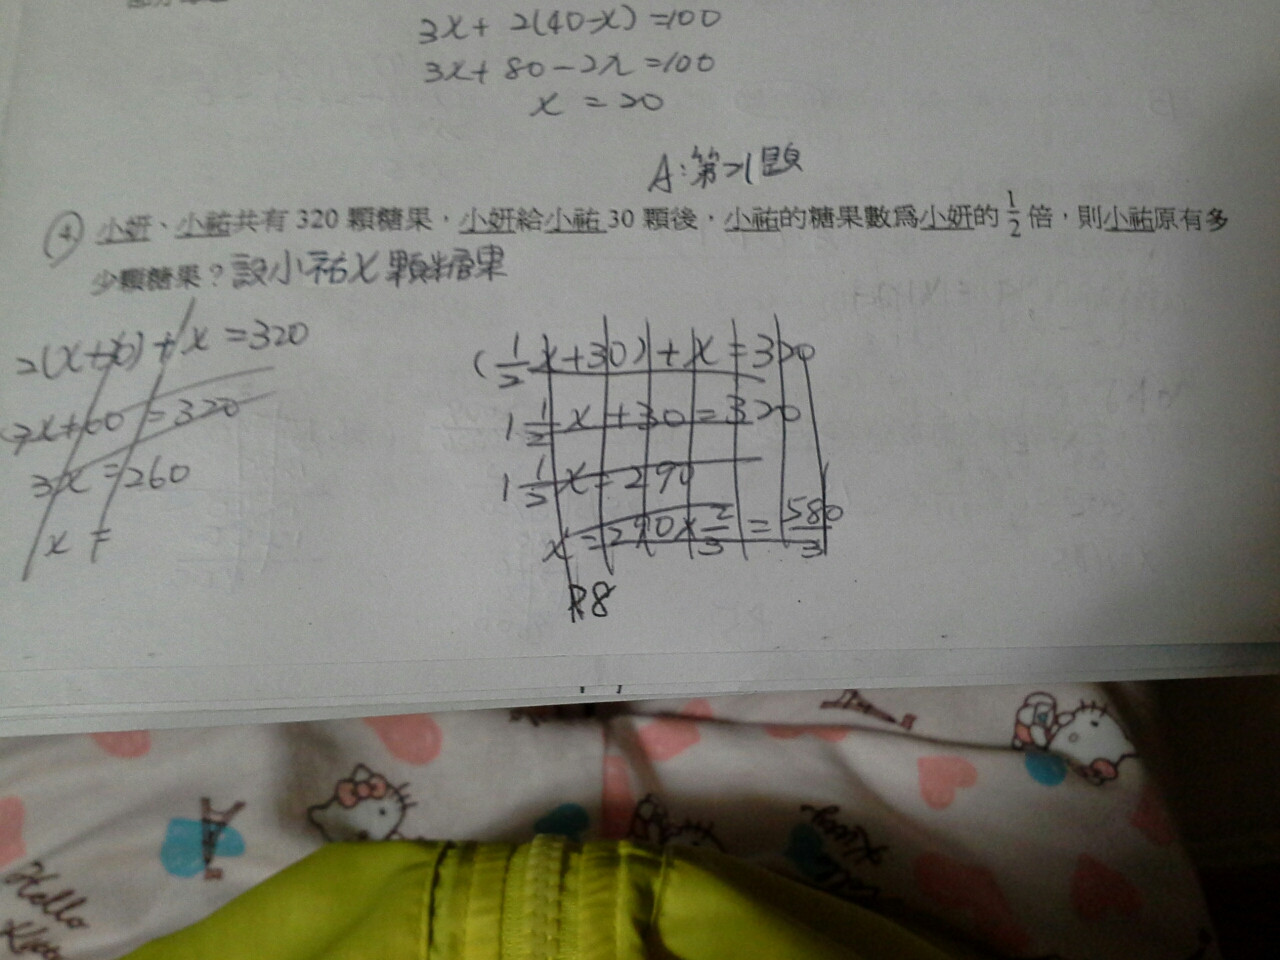 3x+ 2(40-x) =100
3x+ 80-2x =100
x = 20
A:第21題
④ 小妍、小祐共有 320 顆糖果，小妍給小祐 30 顆後，小祐的糖果數為小妍的 1/2 倍，則小祐原有多
少顆糖果？設小祐x顆糖果
2(x+30)+x=320
2x+60=320
3x=260
x=
(1/2x+30)+x=320
1 1/2 x+30=320
1 1/2 x=290
x=290×2/3=580/3
Hello
Kitty